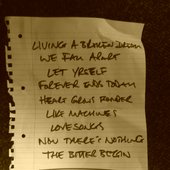 LIVING A BROKEN DREAM
WE FALL APART
LET YRSELF
FOREVER ENDS TODAY
HEART GROWS FONDER
LIKE MACHINES
LOVESONGS
NOW THERE'S NOTHING
THE BITTER BEGIN